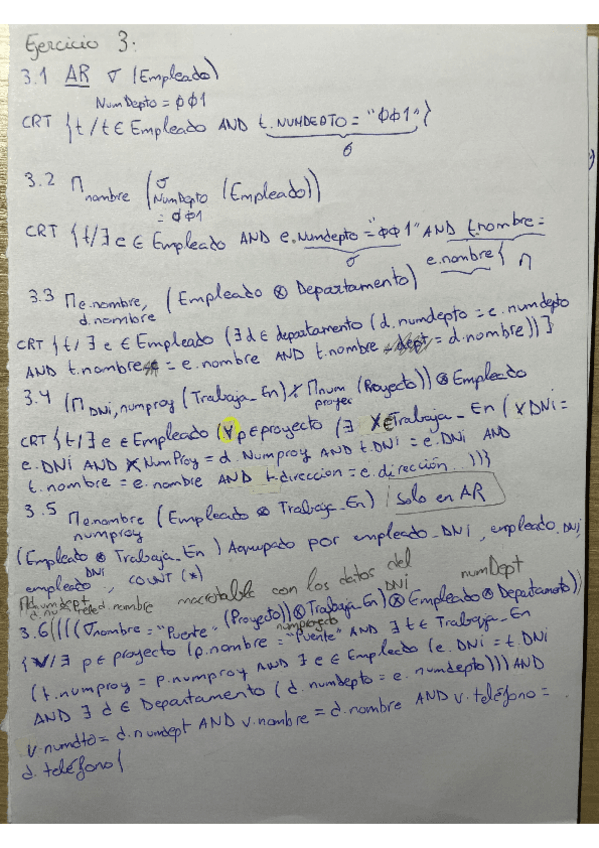 Ejercicio 3:
3.1 AR σ (Empleado)
NumDepto = φφ1
CRT {t / t ∈ Empleado AND t.NUMDEPTO = "φφ1"}
σ
3.2 Π nombre (σ NumDepto = φφ1 (Empleado))
CRT {t/∃ e ∈ Empleado AND e.Numdepto = "φφ1" AND t.nombre =
e.nombre}
σ Π
3.3 Π e.nombre, d.nombre (Empleado ⊗ Departamento)
CRT {t / ∃ e ∈ Empleado (∃ d ∈ departamento (d.numdepto = e.numdepto
AND t.nombre = e.nombre AND t.nombre = d.nombre))}
3.4 (Π DNi, numproy (Trabaja_En) ÷ Π num proyec (Proyecto)) ⊗ Empleado
CRT {t/∃ e ∈ Empleado (∀p∈proyecto (∃ X∈Trabaja_En (X DNi =
e.DNi AND X NumProy = d.Numproy AND t.DNi = e.DNi AND
t.nombre = e.nombre AND t.direccion = e.dirección.)))}
3.5 Π e.nombre numproy (Empleado ⊗ Trabaja_En) Solo en AR
(Empleado ⊗ Trabaja_En) Agrupado por empleado_DNi, empleado.
empleado DNi, COUNT (*)
d.nombre con los datos del
DNi numDept
3.6 ((((σ nombre = "Puente" (Proyecto)) ⊗ Trabaja_En) ⊗ Empleado ⊗ Departamento))
numproyecto
{V/∃ p ∈ proyecto (p.nombre = "Puente" AND ∃ t ∈ Trabaja_En
(t.numproy = p.numproy AND ∃ e ∈ Empleado (e.DNi = t.DNi
AND ∃ d ∈ Departamento (d.numdepto = e.numdepto))) AND
v.numdto = d.numdept AND v.nombre = d.nombre AND v.teléfono =
d.teléfono}